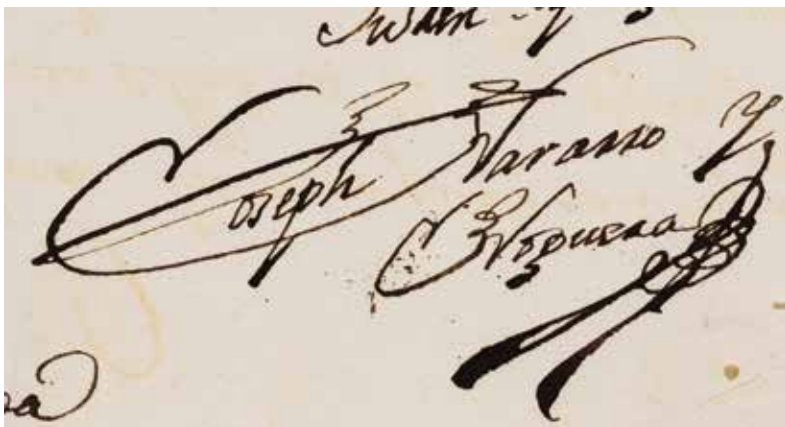 Joseph Navarro y
Noguera